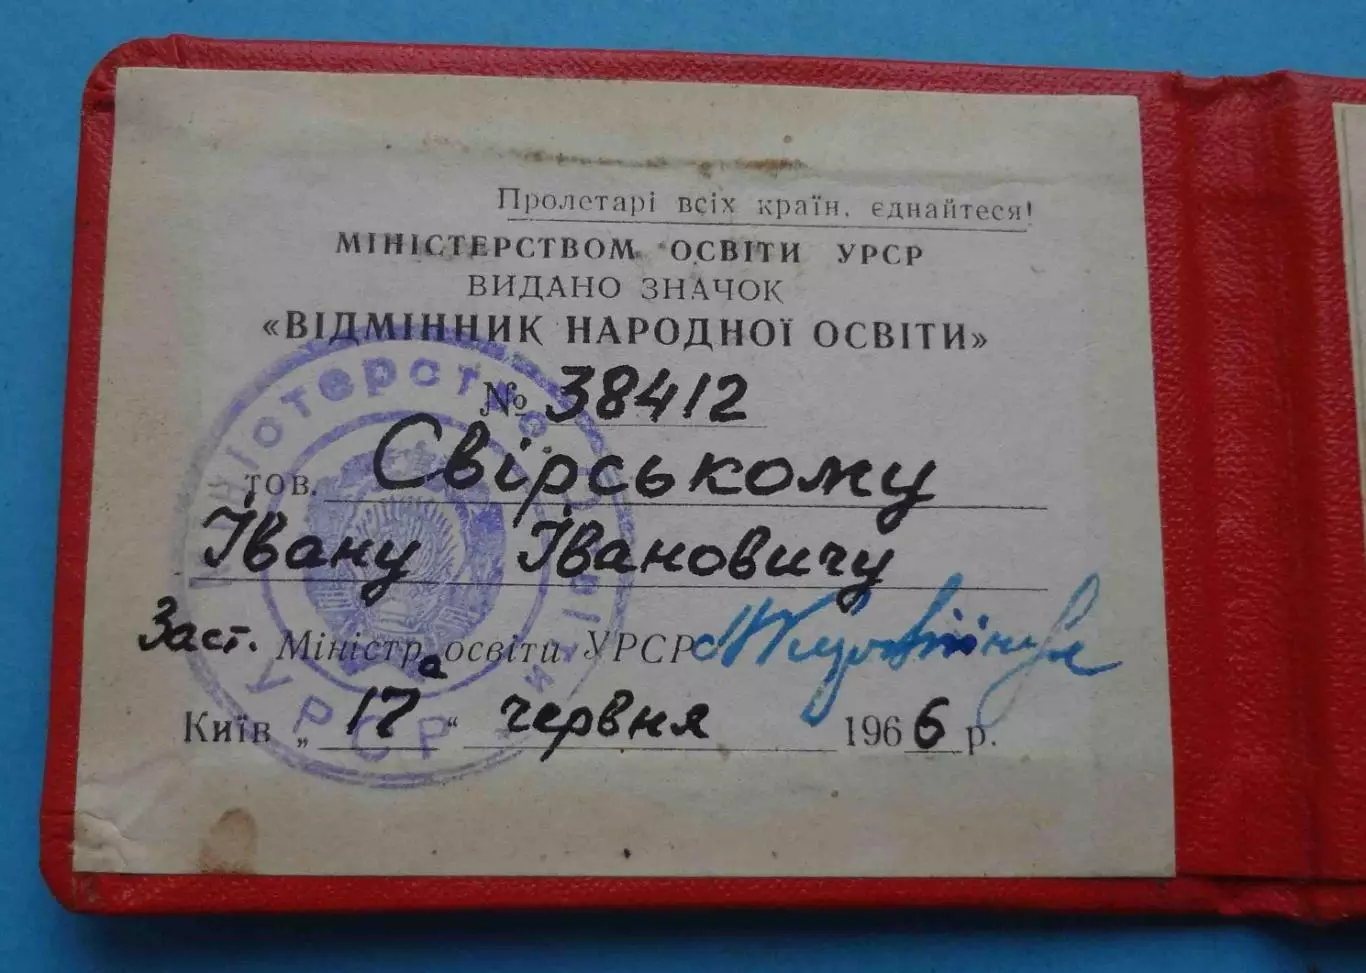 Пролетарі всіх країн, єднайтеся!
МІНІСТЕРСТВОМ ОСВІТИ УРСР
ВИДАНО ЗНАЧОК
«ВІДМІННИК НАРОДНОЇ ОСВІТИ»
№ 38412
тов. Свірському
Івану Івановичу
Заст. Міністра освіти УРСР
Київ „17“ червня 1966 р.
Міністерство Освіти
УРСР